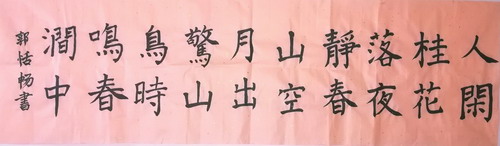 人閑
桂花
落夜
靜春
山空
月出
驚山
鳥時
鳴春
澗中
郭恬畅書